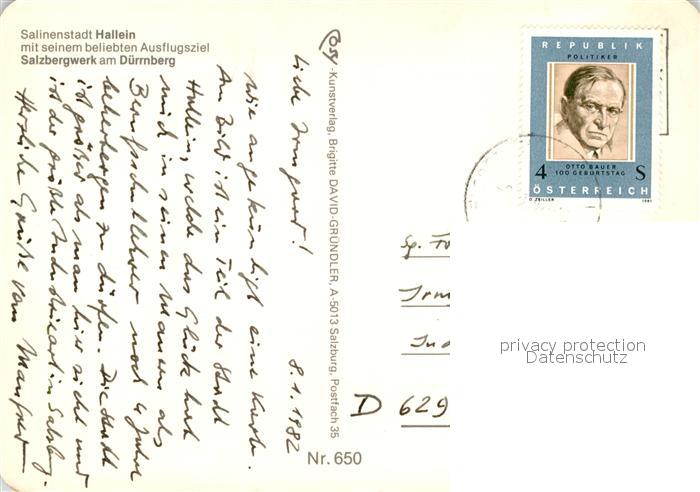 Salinenstadt Hallein
mit seinem beliebten Ausflugsziel
Salzbergwerk am Dürrnberg
Cosy-Kunstverlag, Brigitte DAVID-GRÜNDLER, A-5013 Salzburg, Postfach 35
Nr. 650
8.1.1982
Liebe Irmgard!
Wie angekündigt eine Karte.
Am Bild ist ein Teil der Stadt
Hallein, welche das Glück hat
mich in seinen Mauern als
Berufsschullehrer noch 4 Jahre
beherbergen zu dürfen. Die Stadt
ist größer als man hier sieht und
ist der größte Industrieort in Salzbg.
Herzliche Grüße vom Manfred
REPUBLIK
POLITIKER
OTTO BAUER
100 GEBURTSTAG
4 S
ÖSTERREICH
O. ZEILLER 1981
D 629
privacy protection
Datenschutz